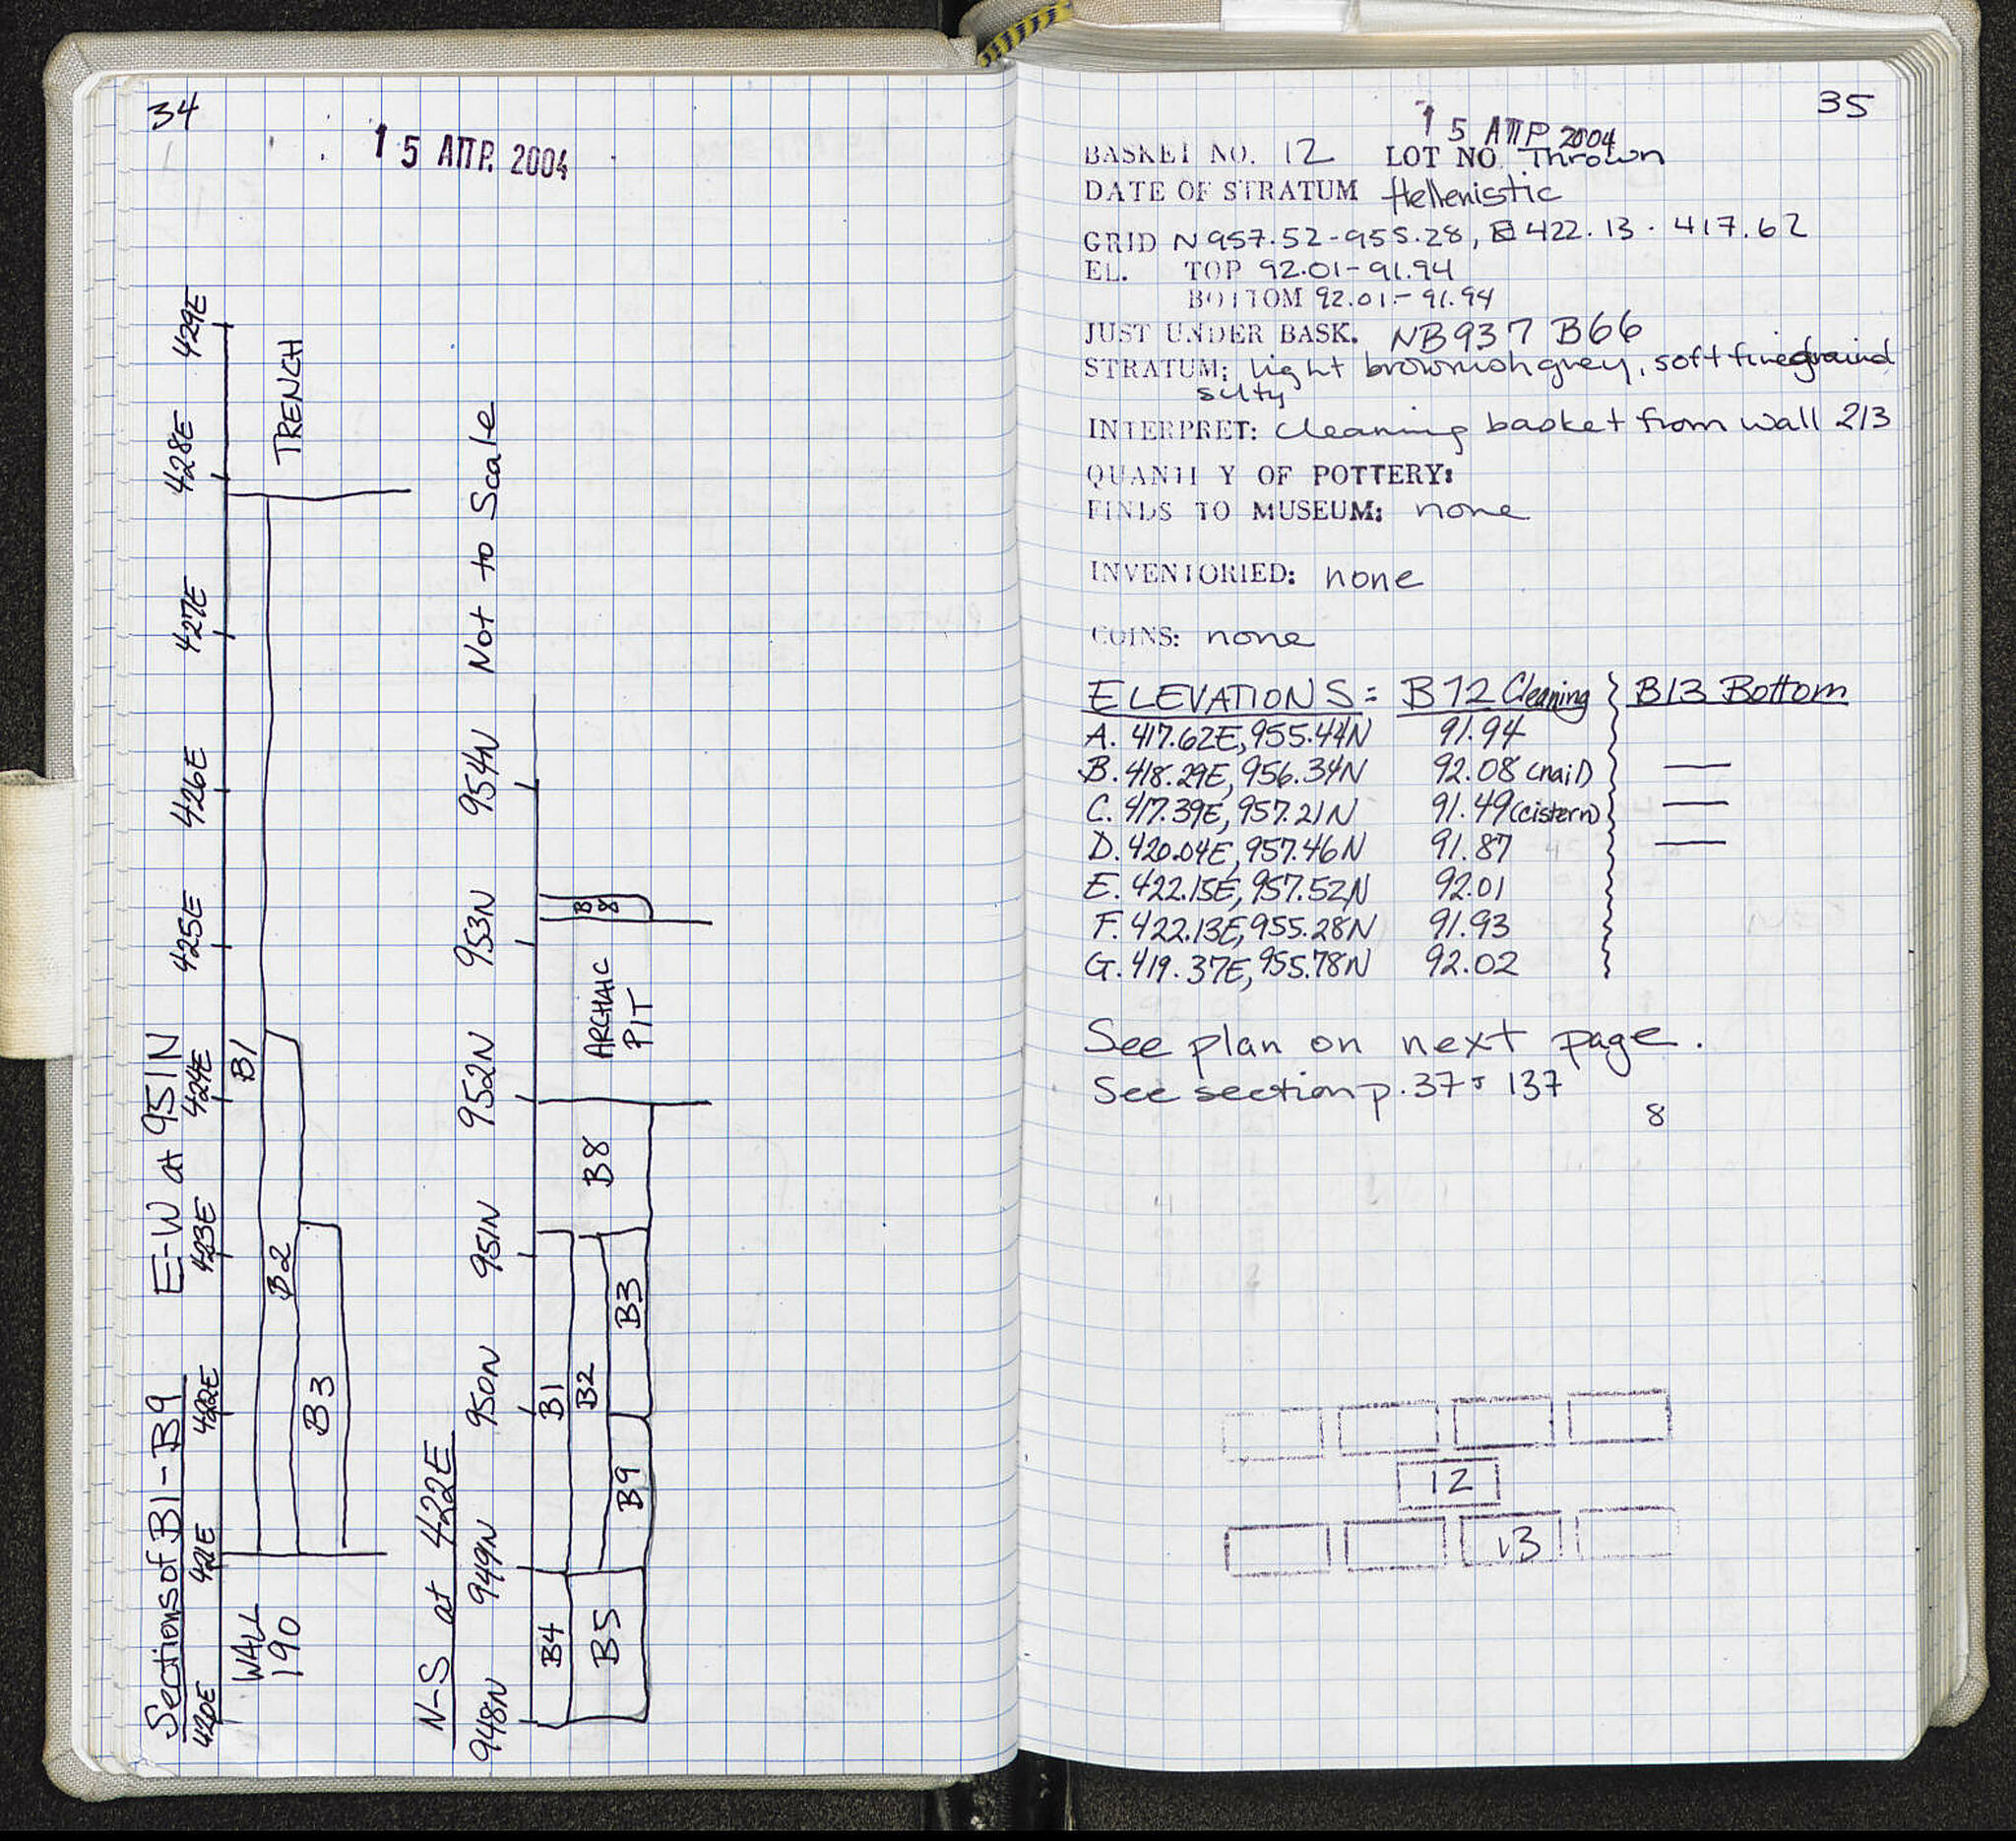 34
15 ΑΠΡ. 2004
Sections of B1-B9 E-W at 951N
420E 421E 422E 423E 424E 425E 426E 427E 428E 429E
WALL
190
B1
B2
B3
TRENCH
N-S at 422E Not to Scale
948N 949N 950N 951N 952N 953N 954N
B4
B5
B1
B2
B9
B3
B8
ARCHAIC
PIT
B
8
35
15 ΑΠΡ 2004
BASKET NO. 12 LOT NO. Thrown
DATE OF STRATUM Hellenistic
GRID N957.52-955.28, E422.13-417.62
EL. TOP 92.01-91.94
BOTTOM 92.01-91.94
JUST UNDER BASK. NB937 B66
STRATUM: light brownish grey, soft finegraind
silty
INTERPRET: cleaning basket from wall 213
QUANTI Y OF POTTERY:
FINDS TO MUSEUM: none
INVENTORIED: none
COINS: none
ELEVATIONS: B12 Cleaning B13 Bottom
A. 417.62E, 955.44N 91.94
B. 418.29E, 956.34N 92.08 (nail) —
C. 417.39E, 957.21N 91.49 (cistern) —
D. 420.04E, 957.46N 91.87 —
E. 422.15E, 957.52N 92.01
F. 422.13E, 955.28N 91.93
G. 419.37E, 955.78N 92.02
See plan on next page.
See section p. 37 137
8
12
13